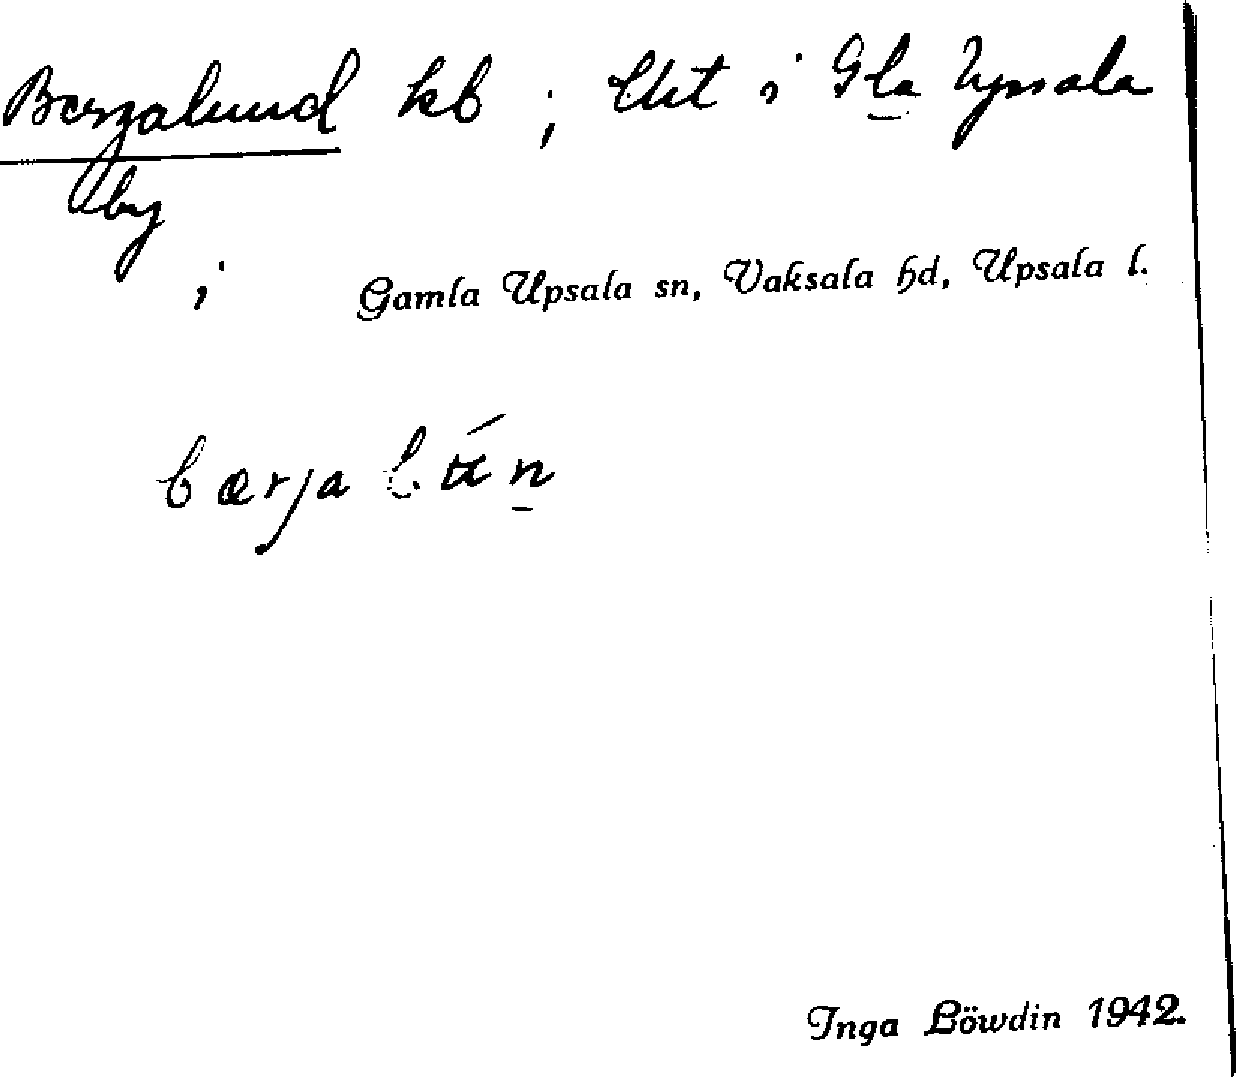 Bergalund kb i Utt i Gla Upsala
by
i Gamla Upsala sn, Vaksala hd, Upsala l.
bærja lún
Inga Löwdin 1942.